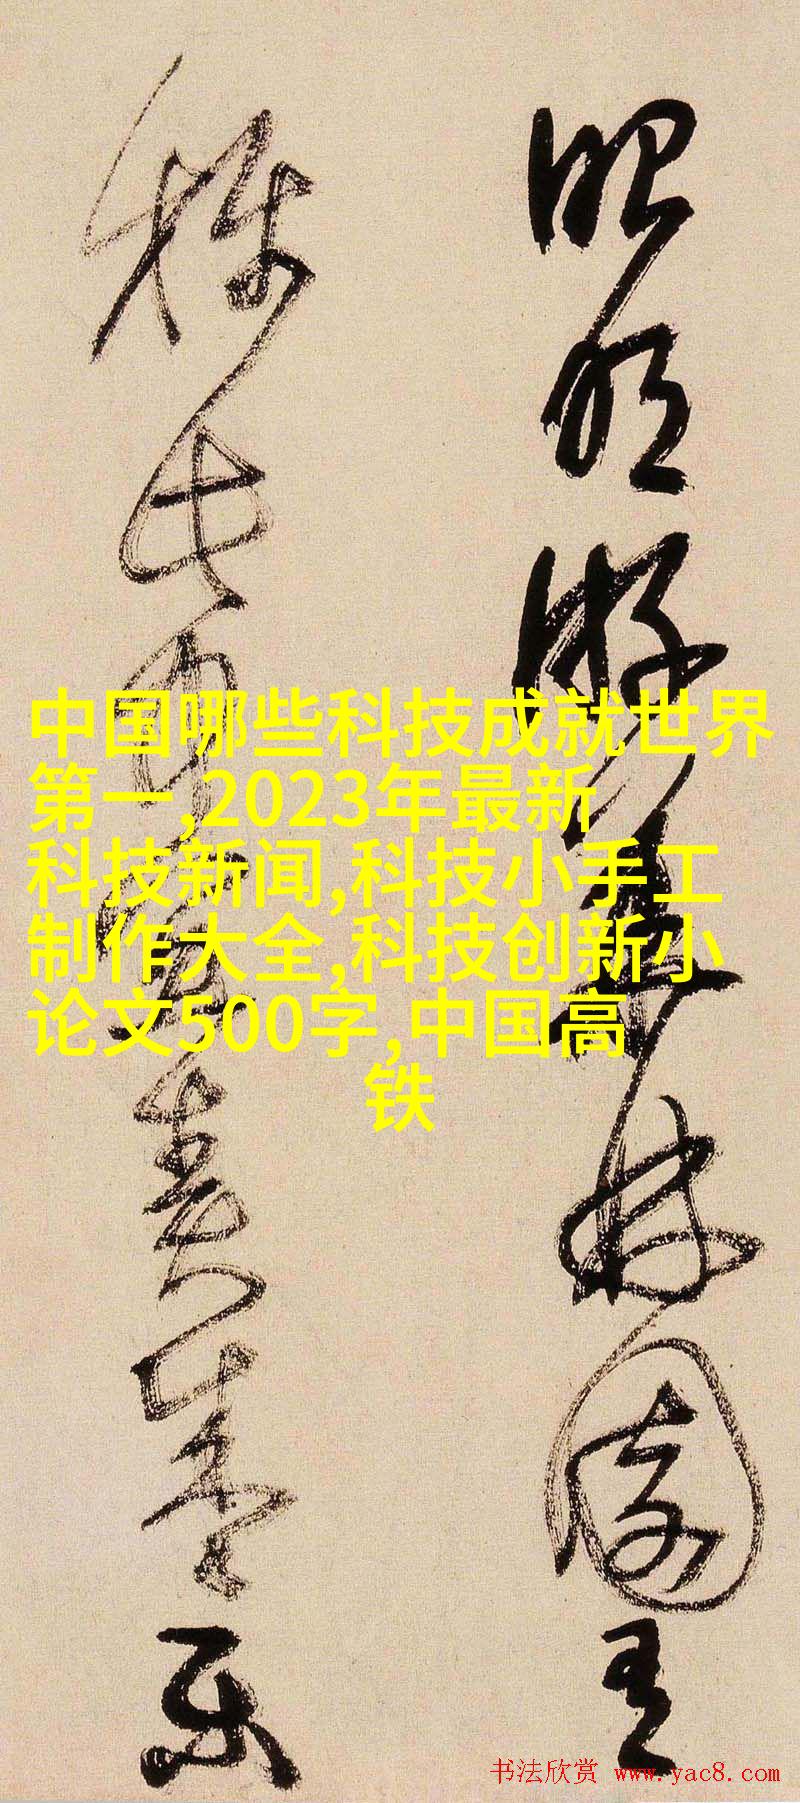 昭明游華林園有
稱此中宜奏樂
中国哪些科技成就世界
第一,2023年最新
科技新闻,科技小手工
制作大全,科技创新小
论文500字,中国高
铁
书法欣赏 www.yac8.com